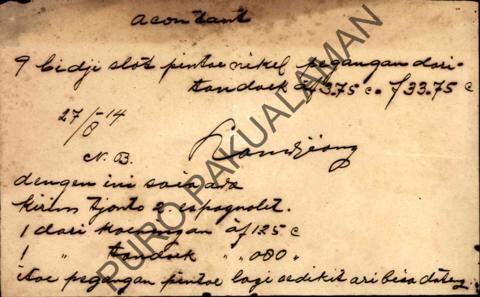 acontant
9 bidji slot pintoe nikel pegangan dari
tandoek à f 3.75 c = f 33.75 c
27/8-14
N.B.
dengen ini saia ada
kirim tjonto 2 espagnolet.
1 dari koeningan à f 125 c
1 " tandoek " " 080 "
itoe pegangan pintoe lagi sedikit ari bisa dateng
PURO PAKUALAMAN